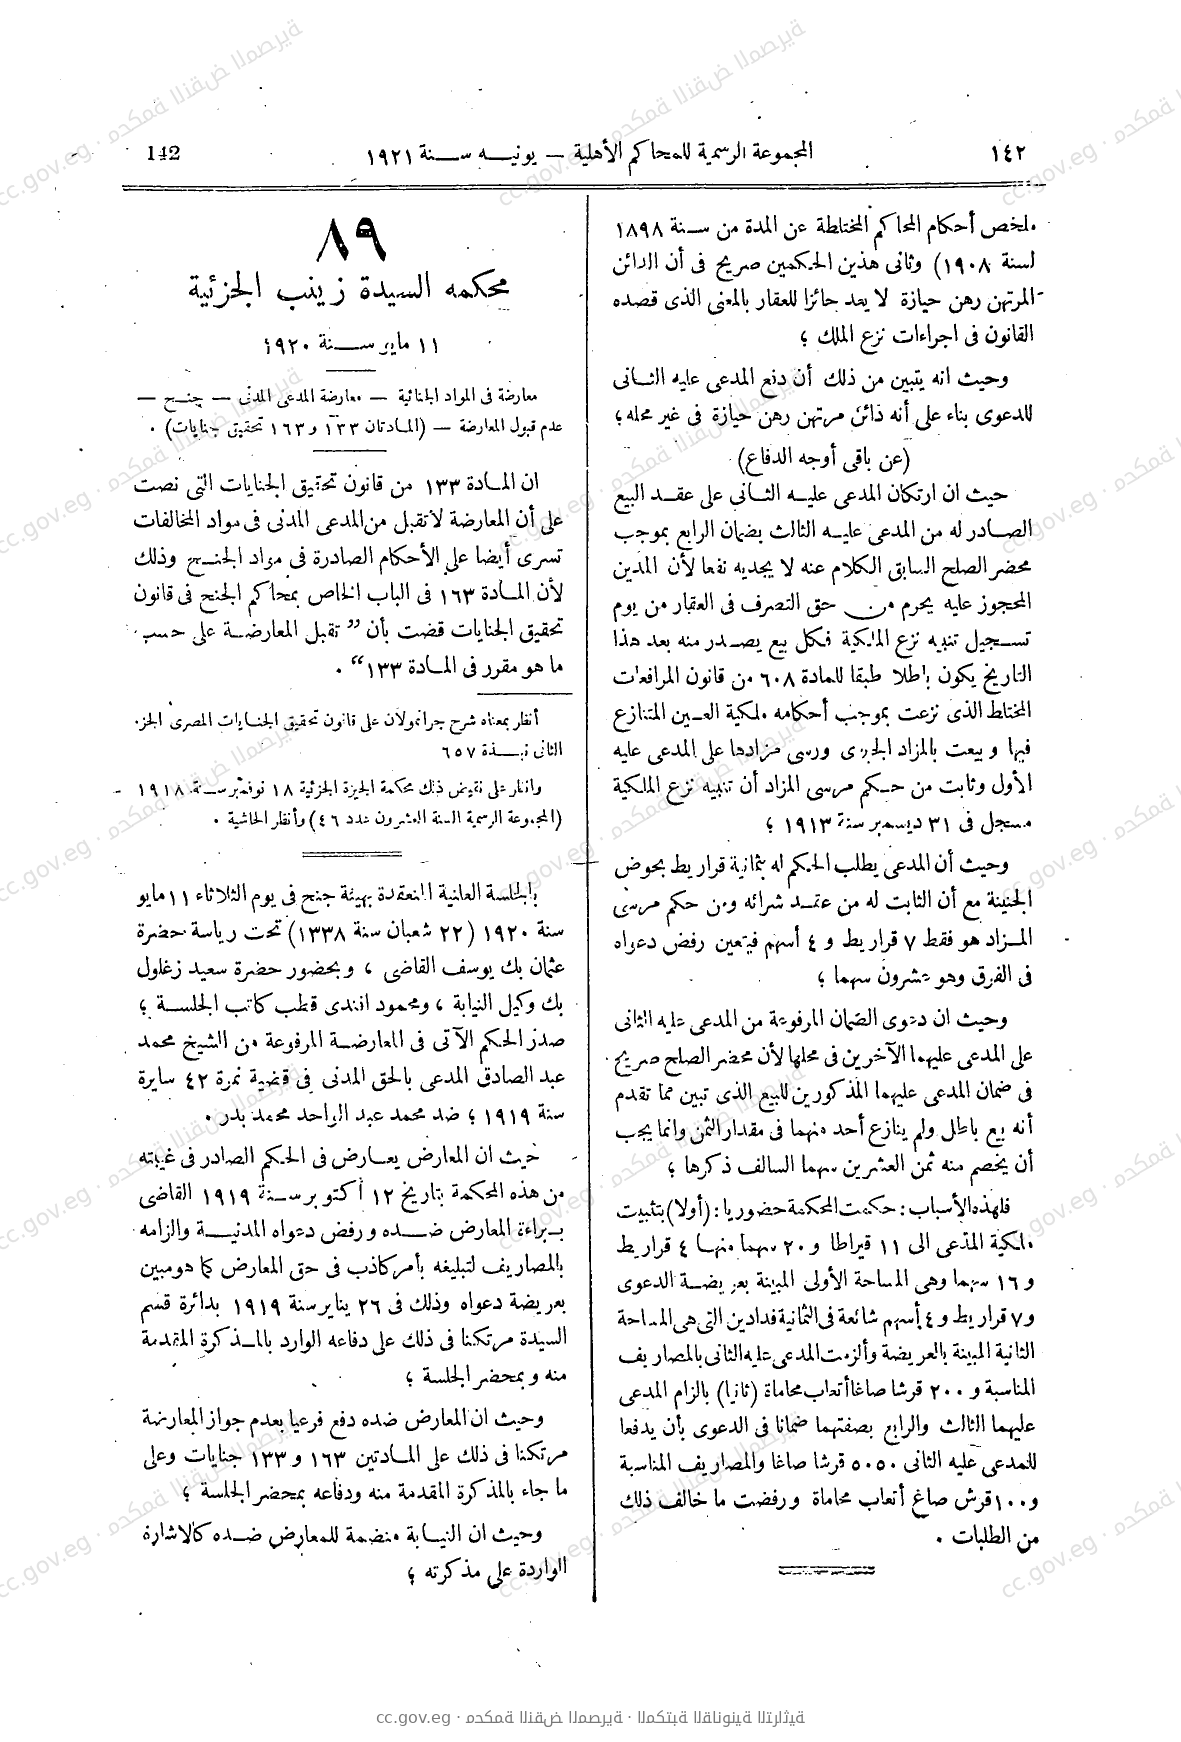 ١٤٢
المجموعة الرسمية للمحاكم الأهلية – يونيه سنة ١٩٢١
142
ملخص أحكام المحاكم المختلطة عن المدة من سنة ١٨٩٨
لسنة ١٩٠٨) وثانى هذين الحكمين صريح فى أن الدائن
المرتهن رهن حيازة لا يعد حائزا للعقار بالمعنى الذى قصده
القانون فى اجراءات نزع الملك ؛
وحيث انه يتبين من ذلك أن دفع المدعى عليه الثانى
للدعوى بناء على أنه دائن مرتهن رهن حيازة فى غير محله ؛
(عن باقى أوجه الدفاع)
حيث ان ارتكان المدعى عليه الثانى على عقد البيع
الصادر له من المدعى عليه الثالث بضمان الرابع بموجب
محضر الصلح السابق الكلام عنه لا يجديه نفعا لأن المدين
المحجوز عليه يحرم من حق التصرف فى العقار من يوم
تسجيل تنبيه نزع الملكية فكل بيع يصدر منه بعد هذا
التاريخ يكون باطلا طبقا للمادة ٦٠٨ من قانون المرافعات
المختلط الذى نزعت بموجب أحكامه ملكية العين المتنازع
فيها وبيعت بالمزاد الجبرى ورسى مزادها على المدعى عليه
الأول وثابت من حكم مرسى المزاد أن تنبيه نزع الملكية
مسجل فى ٣١ ديسمبر سنة ١٩١٣ ؛
وحيث أن المدعى يطلب الحكم له بثمانية قراريط بحوض
الجنينة مع أن الثابت له من عقد شرائه ومن حكم مرسى
المزاد هو فقط ٧ قراريط و ٤ أسهم فيتعين رفض دعواه
فى الفرق وهو عشرون سهما ؛
وحيث ان دعوى الضمان المرفوعة من المدعى عليه الثانى
على المدعى عليهما الآخرين فى محلها لأن محضر الصلح صريح
فى ضمان المدعى عليهما المذكورين للبيع الذى تبين مما تقدم
أنه بيع باطل ولم ينازع أحد منهما فى مقدار الثمن وانما يجب
أن يخصم منه ثمن العشرين سهما السالف ذكرها ؛
فلهذه الأسباب : حكمت المحكمة حضوريا : (أولا) بتثبيت
ملكية المدعى الى ١١ قيراطا و ٢٠ سهما منها ٤ قراريط
و ١٦ سهما وهى المساحة الأولى المبينة بعريضة الدعوى
و ٧ قراريط و ٤ أسهم شائعة فى الثمانية فدادين التى هى المساحة
الثانية المبينة بالعريضة وألزمت المدعى عليه الثانى بالمصاريف
المناسبة و ٢٠٠ قرشا صاغا أتعاب محاماة (ثانيا) بالزام المدعى
عليهما الثالث والرابع بصفتهما ضمانا فى الدعوى بأن يدفعا
للمدعى عليه الثانى ٥٠٥٠ قرشا صاغا والمصاريف المناسبة
و ١٠٠ قرش صاغ أتعاب محاماة ورفضت ما خالف ذلك
من الطلبات .
٨٩
محكمه السيدة زينب الجزئية
١١ مايو سنة ١٩٢٠
معارضة فى المواد الجنائية — معارضة المدعى المدنى — جنح —
عدم قبول المعارضة — (المادتان ١٣٣ و ١٦٣ تحقيق جنايات) .
ان المادة ١٣٣ من قانون تحقيق الجنايات التى نصت
على أن المعارضة لا تقبل من المدعى المدنى فى مواد المخالفات
تسرى أيضا على الأحكام الصادرة فى مواد الجنح وذلك
لأن المادة ١٦٣ فى الباب الخاص بمحاكم الجنح فى قانون
تحقيق الجنايات قضت بأن ” تقبل المعارضة على حسب
ما هو مقرر فى المادة ١٣٣“ .
أنظر بمعناه شرح جرانمولان على قانون تحقيق الجنايات المصرى الجزء
الثانى نبذة ٦٥٧
وانظر على نقيض ذلك محكمة الجيزة الجزئية ١٨ نوفمبر سنة ١٩١٨
(المجموعة الرسمية السنة العشرون عدد ٤٦) وأنظر الحاشية .
بالجلسة العلنية المنعقدة بهيئة جنح فى يوم الثلاثاء ١١ مايو
سنة ١٩٢٠ (٢٢ شعبان سنة ١٣٣٨) تحت رياسة حضرة
عثمان بك يوسف القاضى ، وبحضور حضرة سعيد زغلول
بك وكيل النيابة ، ومحمود افندى قطب كاتب الجلسة ؛
صدر الحكم الآتى فى المعارضة المرفوعة من الشيخ محمد
عبد الصادق المدعى بالحق المدنى فى قضية نمرة ٤٢ سايرة
سنة ١٩١٩ ؛ ضد محمد عبد الواحد محمد بدر .
حيث ان المعارض يعارض فى الحكم الصادر فى غيبته
من هذه المحكمة بتاريخ ١٢ أكتوبر سنة ١٩١٩ القاضى
ببراءة المعارض ضده ورفض دعواه المدنية والزامه
بالمصاريف لتبليغه بأمر كاذب فى حق المعارض كما هو مبين
بعريضة دعواه وذلك فى ٢٦ يناير سنة ١٩١٩ بدائرة قسم
السيدة مرتكنا فى ذلك على دفاعه الوارد بالمذكرة المقدمة
منه وبمحضر الجلسة ؛
وحيث ان المعارض ضده دفع فرعيا بعدم جواز المعارضة
مرتكنا فى ذلك على المادتين ١٦٣ و ١٣٣ جنايات وعلى
ما جاء بالمذكرة المقدمة منه ودفاعه بمحضر الجلسة ؛
وحيث ان النيابة منضمة للمعارض ضده كالاشارة
الواردة على مذكرته ؛
cc.gov.eg · محكمة النقض المصرية · المكتبة القانونية التراثية